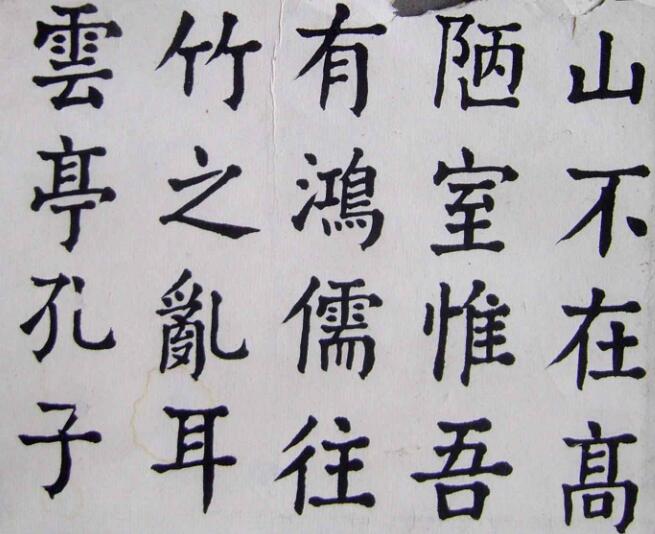 山不在髙
陋室惟吾
有鴻儒往
竹之亂耳
雲亭孔子